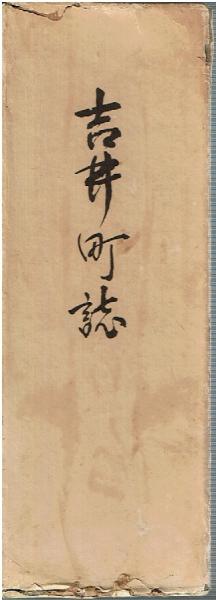 吉井町誌